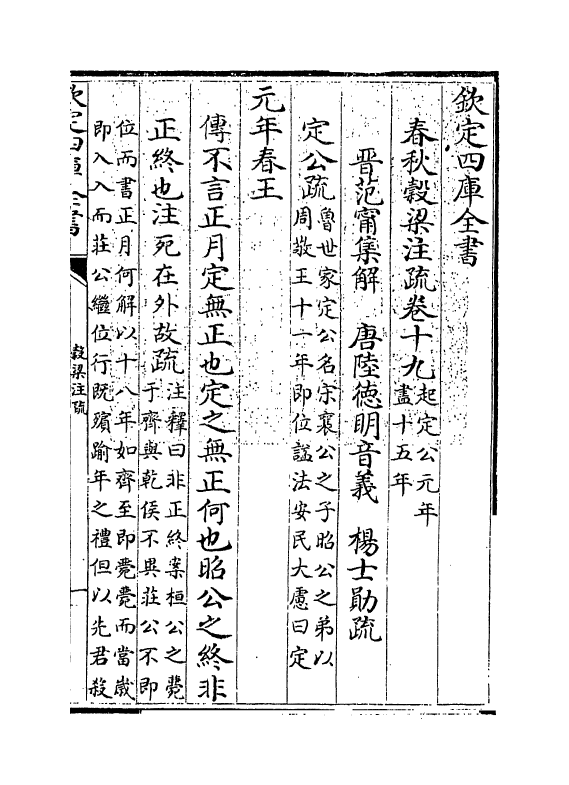 欽定四庫全書
春秋穀梁注疏卷十九起定公元年
盡十五年
晋范甯集解　唐陸德明音義　楊士勛疏
定公疏魯世家定公名宋襄公之子昭公之弟以
周敬王十一年即位諡法安民大慮曰定
元年春王
傳不言正月定無正也定之無正何也昭公之終非
正終也注死在外故疏注釋曰非正終案桓公之薨
于齊與乾侯不異莊公不即
位而書正月何解以十八年如齊至即薨薨而當歲
即入入而莊公繼位行既殯踰年之禮但以先君殺
欽定四庫全書
穀梁注疏
一